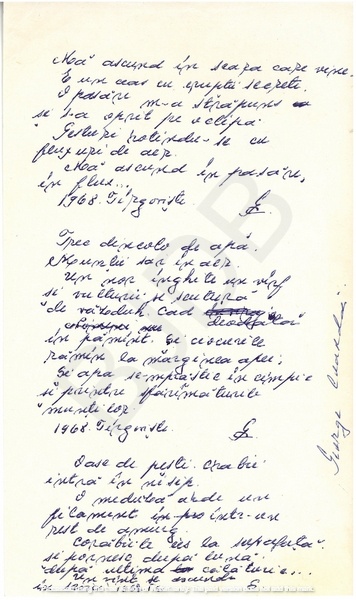 Mă ascund în seara care vine.
E un ceas cu erupții secrete.
O pasăre m-a străpuns
și s-a oprit pe o clipă
Gesturi rotindu-se cu
fluxuri de aer.
Mă ascund în pasăre,
în flux...
1968. Tîrgoviște.
Trec dincolo de apă.
Munții sar în aer.
Un nor înghite un vîrf
și vulturii se scutură
de văzduh. Cad deodată
în pămînt. Și ciocurile
rămîn la marginea apei;
Și apa se împrăștie în cîmpie
printre sfărîmăturile
munților
1968. Tîrgoviște
Oase de pești. Crabii
intră în nisip.
O meduză arde un
filament într-un
rest de amurg.
Corăbiile ies la suprafață
se pornesc după lună
după ultima călătorie...
Un vînt se ascunde
în
George